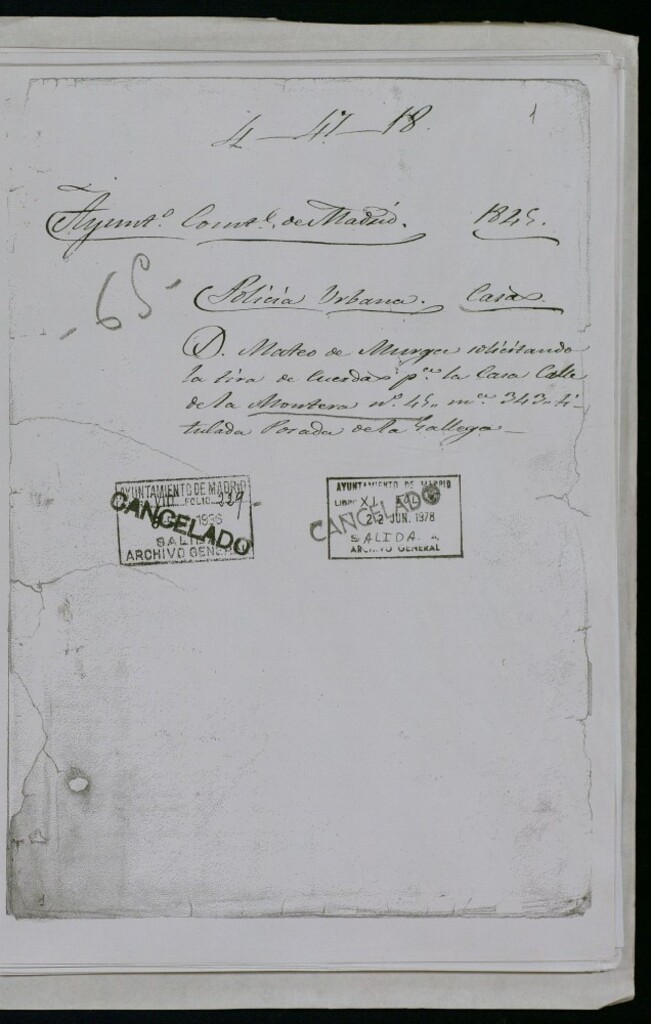 4-47-18.
1
Ayuntº. Constl. de Madrid. 1845.
-65-
Policía Urbana. Casas.
D. Mateo de Murga solicitando
la tira de Cuerdas pª. la Casa Calle
de la Montera nº. 45,, mª. 343,, ti-
tulada Posada de la Gallega_
AYUNTAMIENTO DE MADRID
VIII FOLIO 239
1936
SALIDA
ARCHIVO GENERAL
CANCELADO
AYUNTAMIENTO DE MADRID
LIBRO XI FOLIO
22 JUN. 1978
SALIDA
ARCHIVO GENERAL
CANCELADO